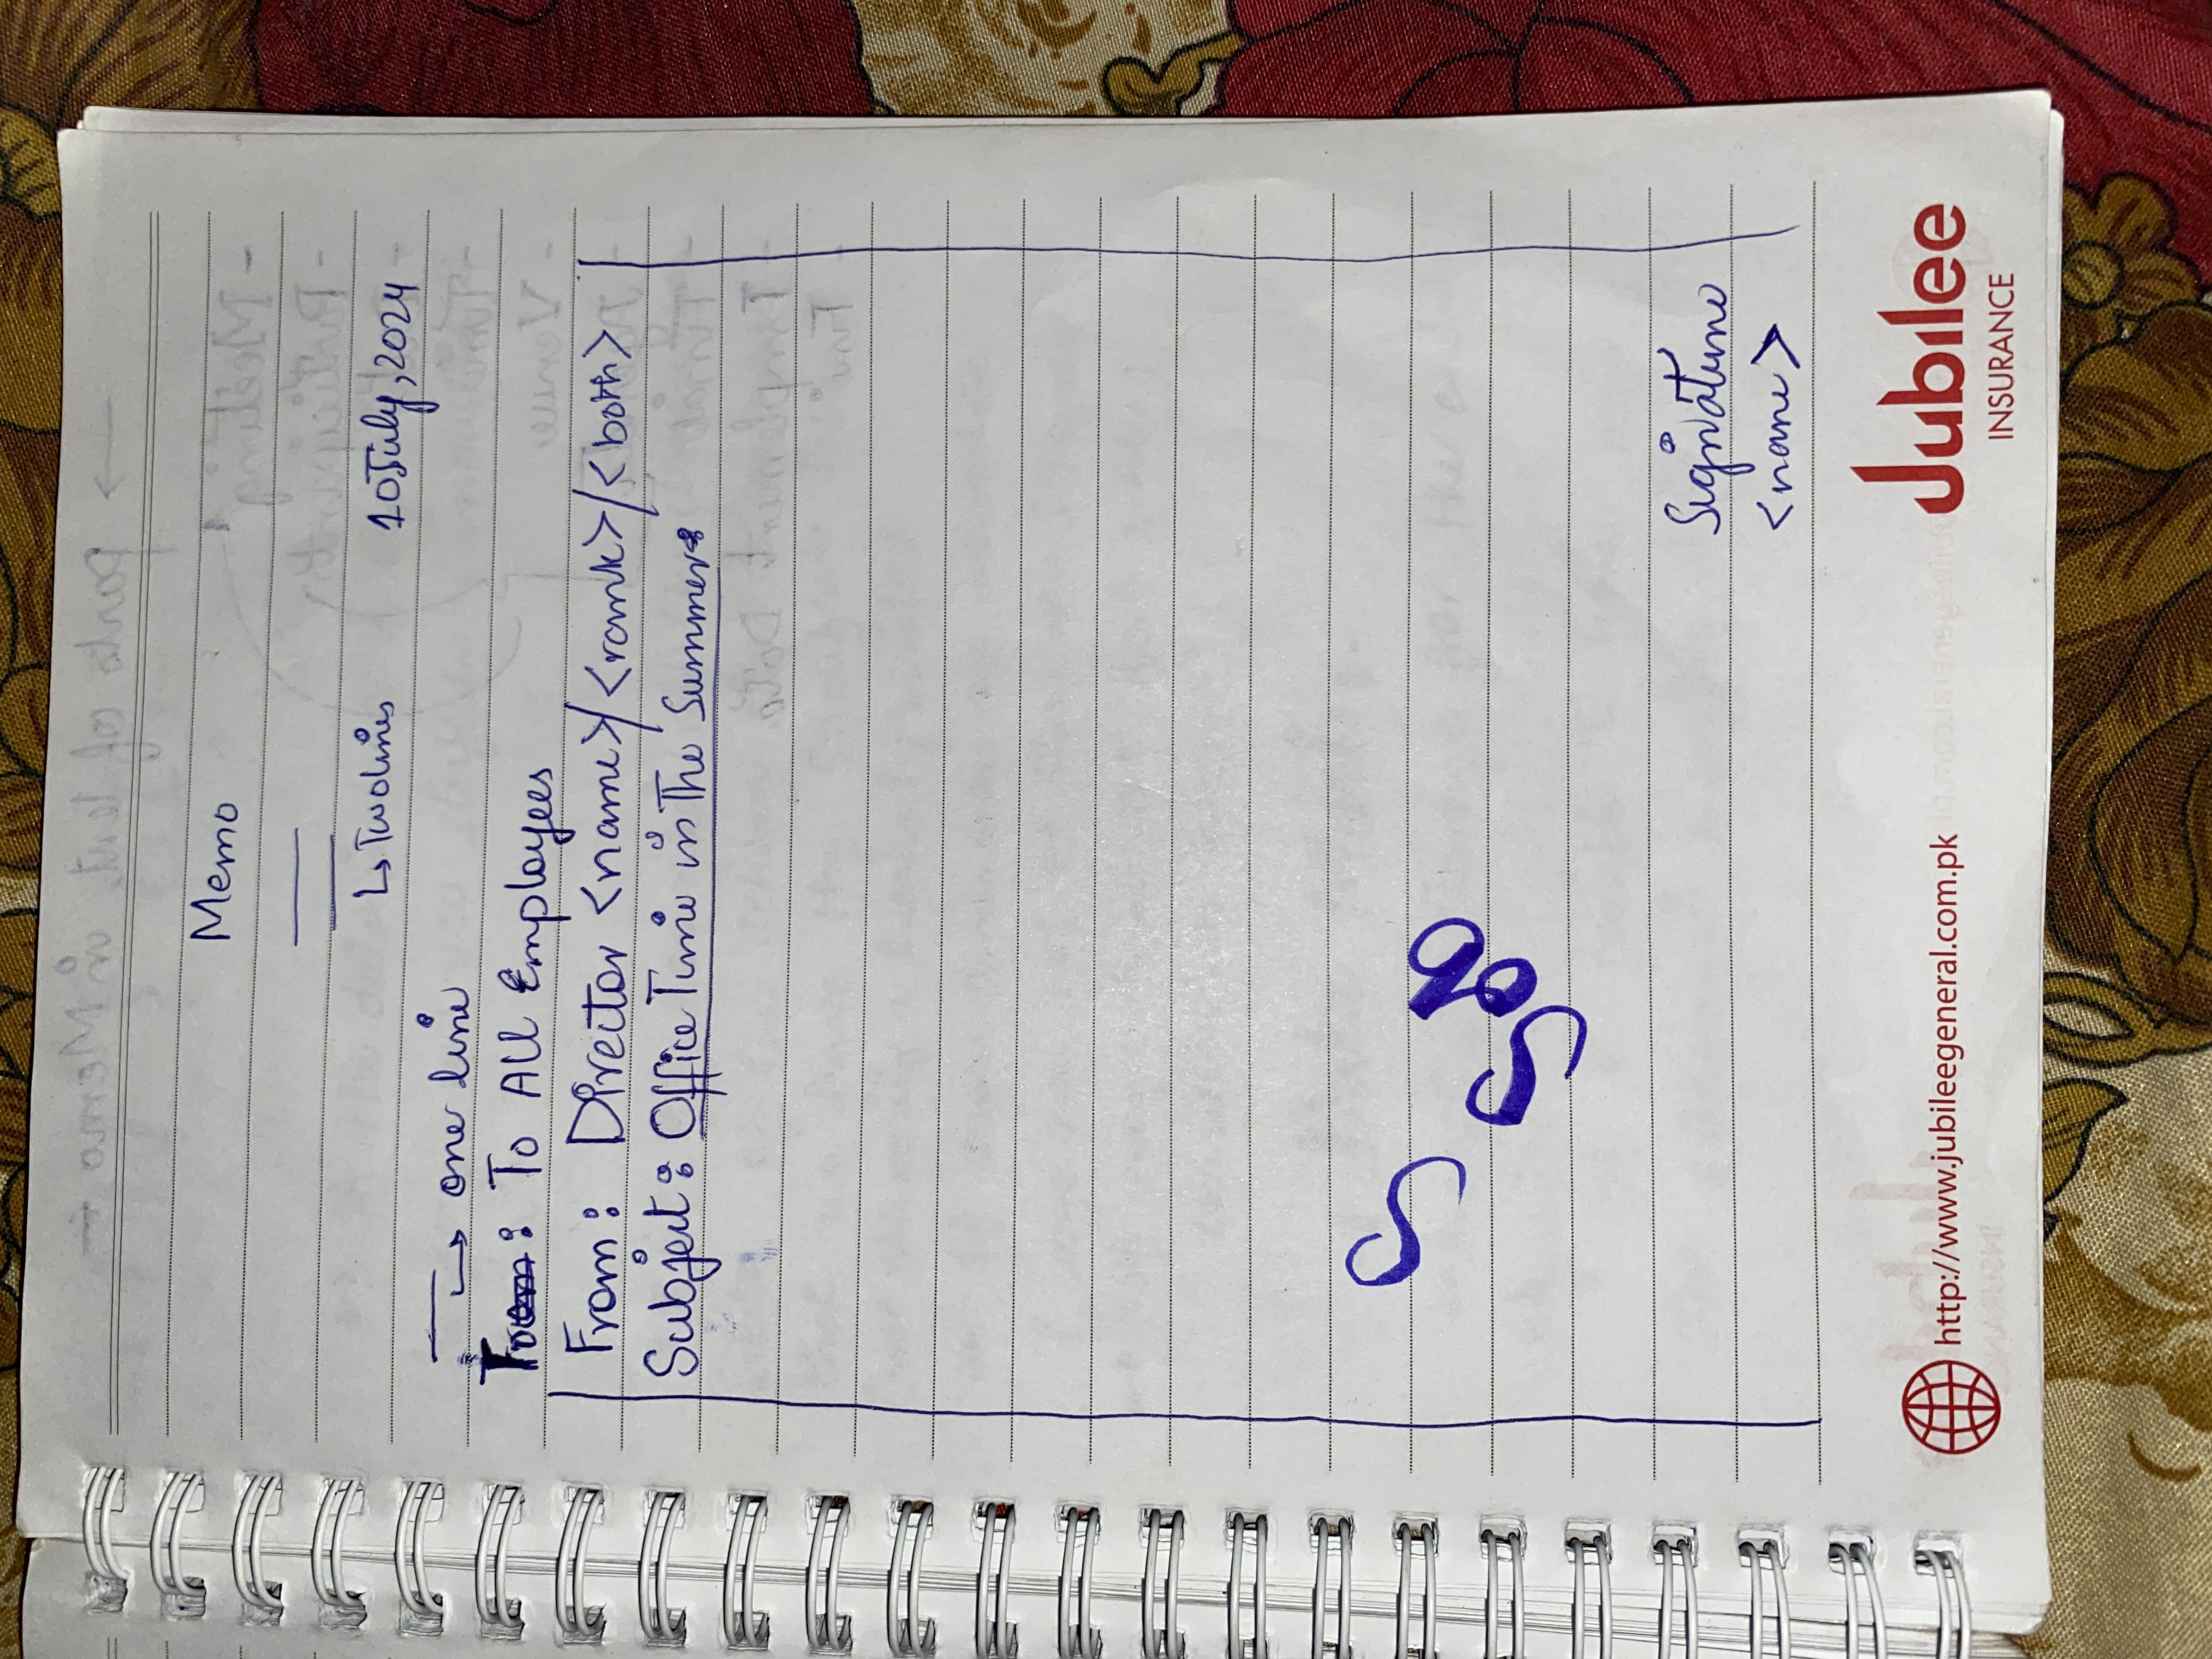 Memo
↳ Two lines
10 July, 2024
→ one line
To: To All Employees
From: Director <name>/<rank>/<both>
Subject: Office Time in The Summer:
S
Sob
Signature
<name>
http://www.jubileegeneral.com.pk
Jubilee
INSURANCE